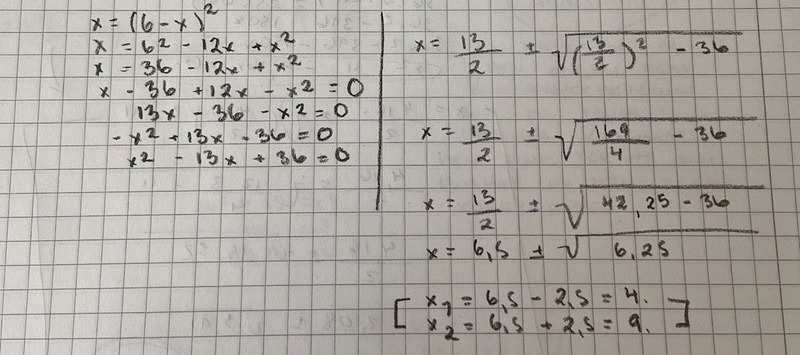 x = (6 - x)²
x = 6² - 12x + x²
x = 36 - 12x + x²
x - 36 + 12x - x² = 0
13x - 36 - x² = 0
-x² + 13x - 36 = 0
x² - 13x + 36 = 0
x = 13/2 ± √((13/2)² - 36)
x = 13/2 ± √(169/4 - 36)
x = 13/2 ± √(42,25 - 36)
x = 6,5 ± √6,25
[ x₁ = 6,5 - 2,5 = 4.
x₂ = 6,5 + 2,5 = 9. ]